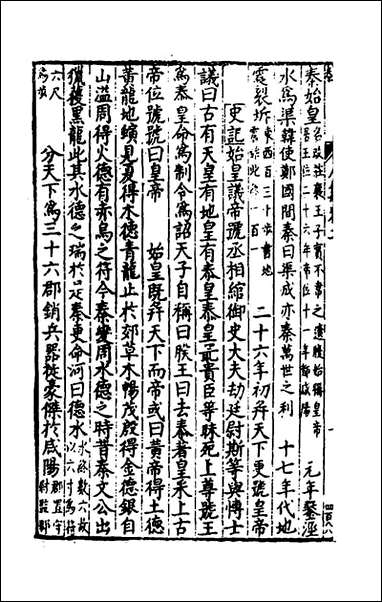 秦始皇名政莊襄王子實不韋之遺體始稱皇帝 元年鑿涇
水為渠韓使鄭國間秦曰渠成亦秦萬世之利 十七年代地
震裂坼東西百三十步 二十六年初并天下更號皇帝
史記始皇議帝號丞相綰御史大夫劫廷尉斯等與博士
議曰古有天皇有地皇有泰皇泰皇最貴臣等昧死上尊號王
為泰皇命為制令為詔天子自稱曰朕王曰去泰著皇采上古
帝位號號曰皇帝 始皇既并天下而帝或曰黃帝得土德
黃龍地螾見夏得木德青龍止於郊草木暢茂殷得金德銀自
山溢周得火德有赤烏之符今秦變周水德之時昔秦文公出
獵獲黑龍此其水德之瑞於是秦更命河曰德水水終數六故以六寸為符
六尺為步 分天下為三十六郡銷兵器徙豪傑於咸陽郡置守尉監